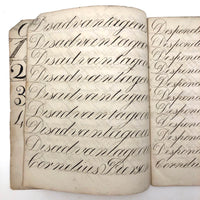 Disadvantageou
Disadvantageou
Disadvantageou
Disadvantageou
Disadvantageou
Disadvantageou
Disadvantageou
Disadvantageou
Cornelius
1
2
3
4
Despond
Despond
Despond
Despond
Despond
Despond
Despond
Despond
Cornelius